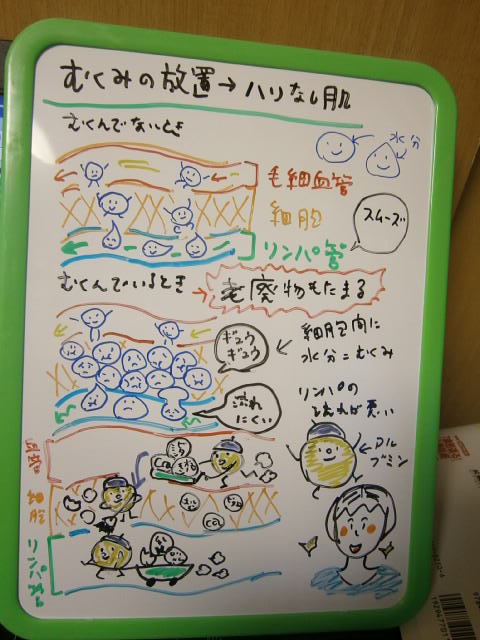 むくみの放置→ハリなし肌
むくんでないとき
水分
毛細血管
細胞
スムーズ
リンパ管
むくんでいるとき
→老廃物もたまる
ギュウ
ギュウ
細胞間に
水分=むくみ
流れ
にくい
リンパの
流れが悪い
アル
ブミン
血管
細胞
リンパ管
Ca